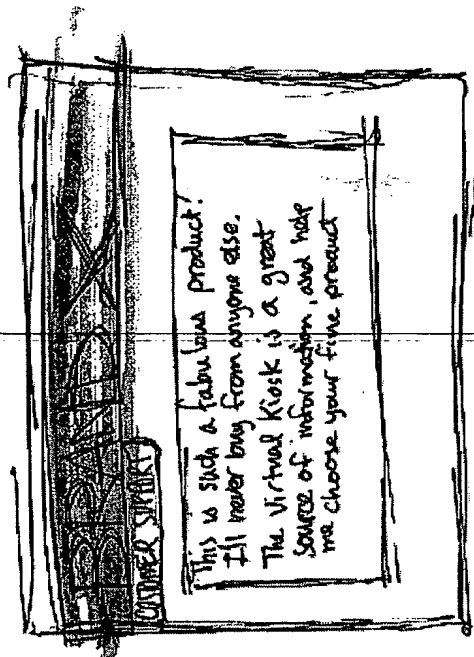 BRAND X
CUSTOMER SUPPORT
This is such a fabulous product!
I'll never buy from anyone else.
The Virtual Kiosk is a great
source of information, and help
me choose your fine product